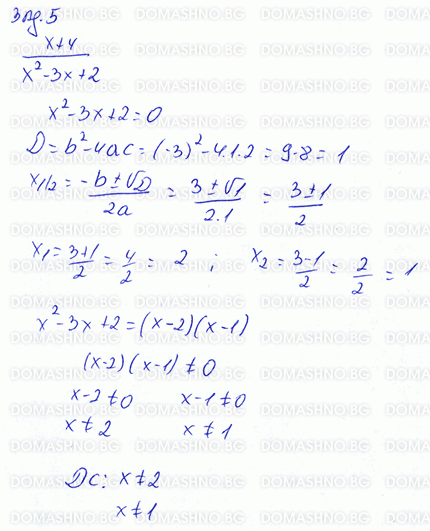 Зад. 5
x+4
x²-3x+2
x²-3x+2=0
D=b²-4ac=(-3)²-4.1.2=9-8=1
x₁/₂ = -b±√D / 2a = 3±√1 / 2.1 = 3±1 / 2
x₁ = 3+1 / 2 = 4 / 2 = 2 ; x₂ = 3-1 / 2 = 2 / 2 = 1
x²-3x+2=(x-2)(x-1)
(x-2)(x-1)≠0
x-2≠0 x-1≠0
x≠2 x≠1
DC: x≠2
x≠1
DOMASHNO.BG